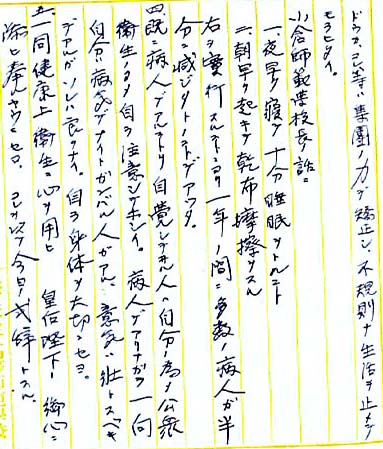 ドウカコレ等ハ集団ノ力デ矯正シ、不規則ナ生活ヲ止メテ
モラヒタイ。
小倉師範学校長ノ話ニ
一、夜早ク寝テ十分睡眠ヲトルコト
二、朝早ク起キテ乾布摩擦ヲスル
右ヲ実行スルコトニヨリ一年ノ間ニ多数ノ病人ガ半
分ニ減ジタトノコトデアツタ。
四、既ニ病人デアルコトヲ自覚シテヰル人ハ自分ノ為メ公衆
衛生ノタメ自ラ注意シテホシイ。病人デアリナガラ一向
自分ハ病気デナイトガンバル人ガアル、意気ハ壮トスベキ
デアルガソレハ良クナイ。自ラ身体ヲ大切ニセヨ。
五、一同健康上衛生ニ心ヲ用ヒ 皇后陛下ノ御心ニ
添ヒ奉ルヤウニセヨ。コレヲ以テ今日ノ式辞トスル。